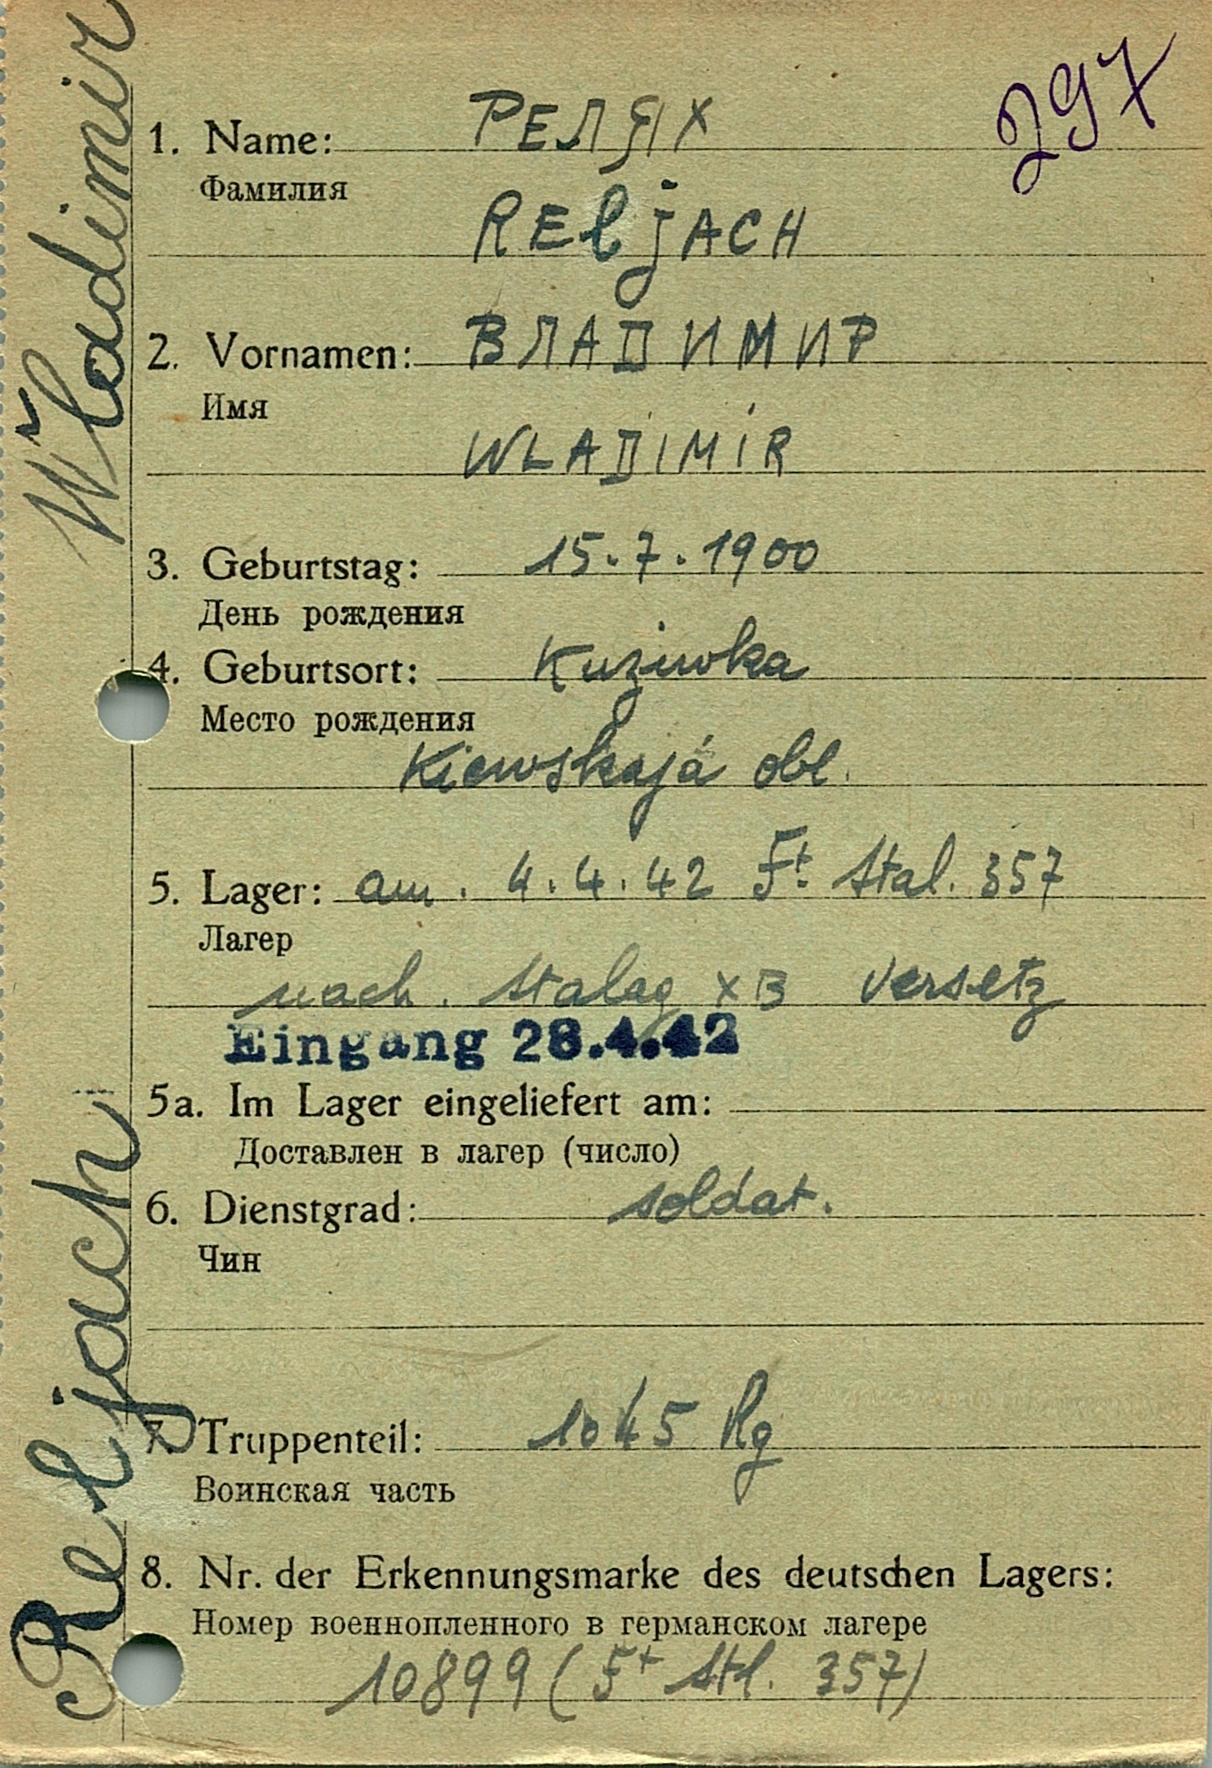 297
1. Name: РЕЛЯХ
Фамилия
RElJACH
2. Vornamen: ВЛАДИМИР
Имя
WLADIMIR
3. Geburtstag: 15.7.1900
День рождения
4. Geburtsort: Kuziwka
Место рождения
Kiewskajá obl.
5. Lager: am. 4.4.42 Ft. Stal. 357
Лагер
nach. Stalag XB versetz
Eingang 28.4.42
5a. Im Lager eingeliefert am:
Доставлен в лагер (число)
6. Dienstgrad: soldat.
Чин
7. Truppenteil: 1045 Rg
Воинская часть
8. Nr. der Erkennungsmarke des deutschen Lagers:
Номер военнопленного в германском лагере
10899 (Ft Stl. 357)
Reljach Wladimir